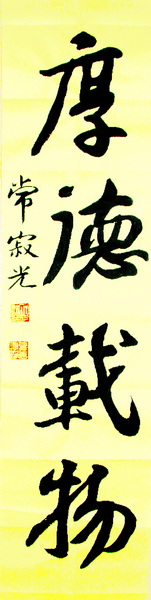 厚德載物
常寂光